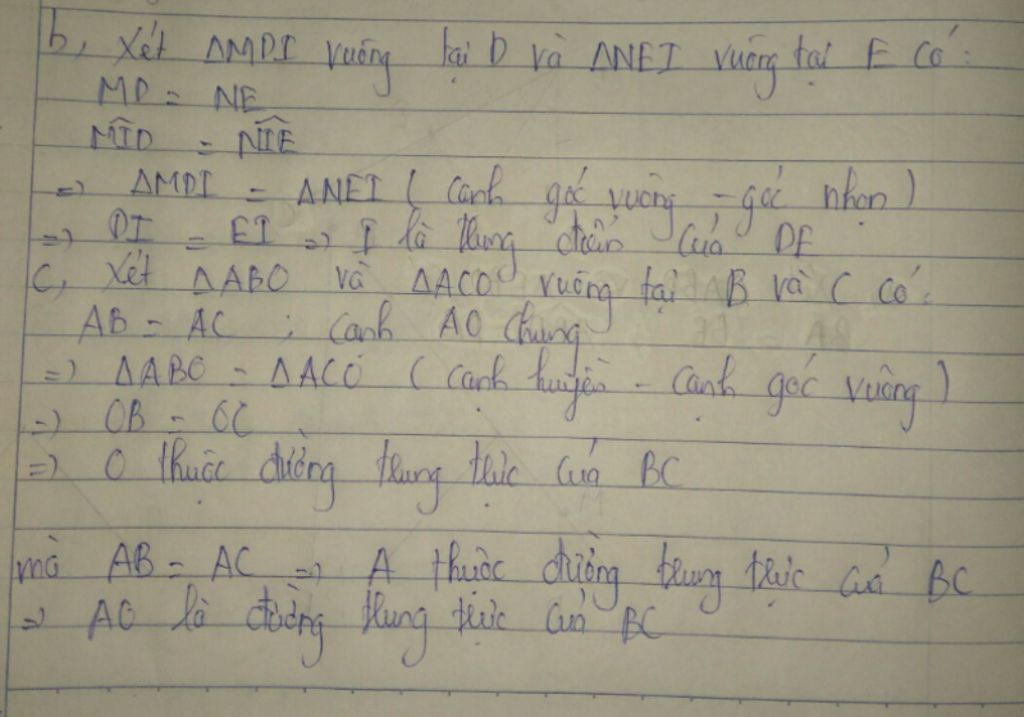 b, Xét ΔMDI vuông tại D và ΔNEI vuông tại E có:
MD = NE
MID = NIE
=> ΔMDI = ΔNEI ( cạnh góc vuông - góc nhọn )
=> DI = EI => I là trung điểm của DE
C, Xét ΔABO và ΔACO vuông tại B và C có:
AB = AC ; cạnh AO chung
=> ΔABO = ΔACO ( cạnh huyền - cạnh góc vuông )
=> OB = OC
=> O thuộc đường trung trực của BC
mà AB = AC => A thuộc đường trung trực của BC
=> AO là đường trung trực của BC